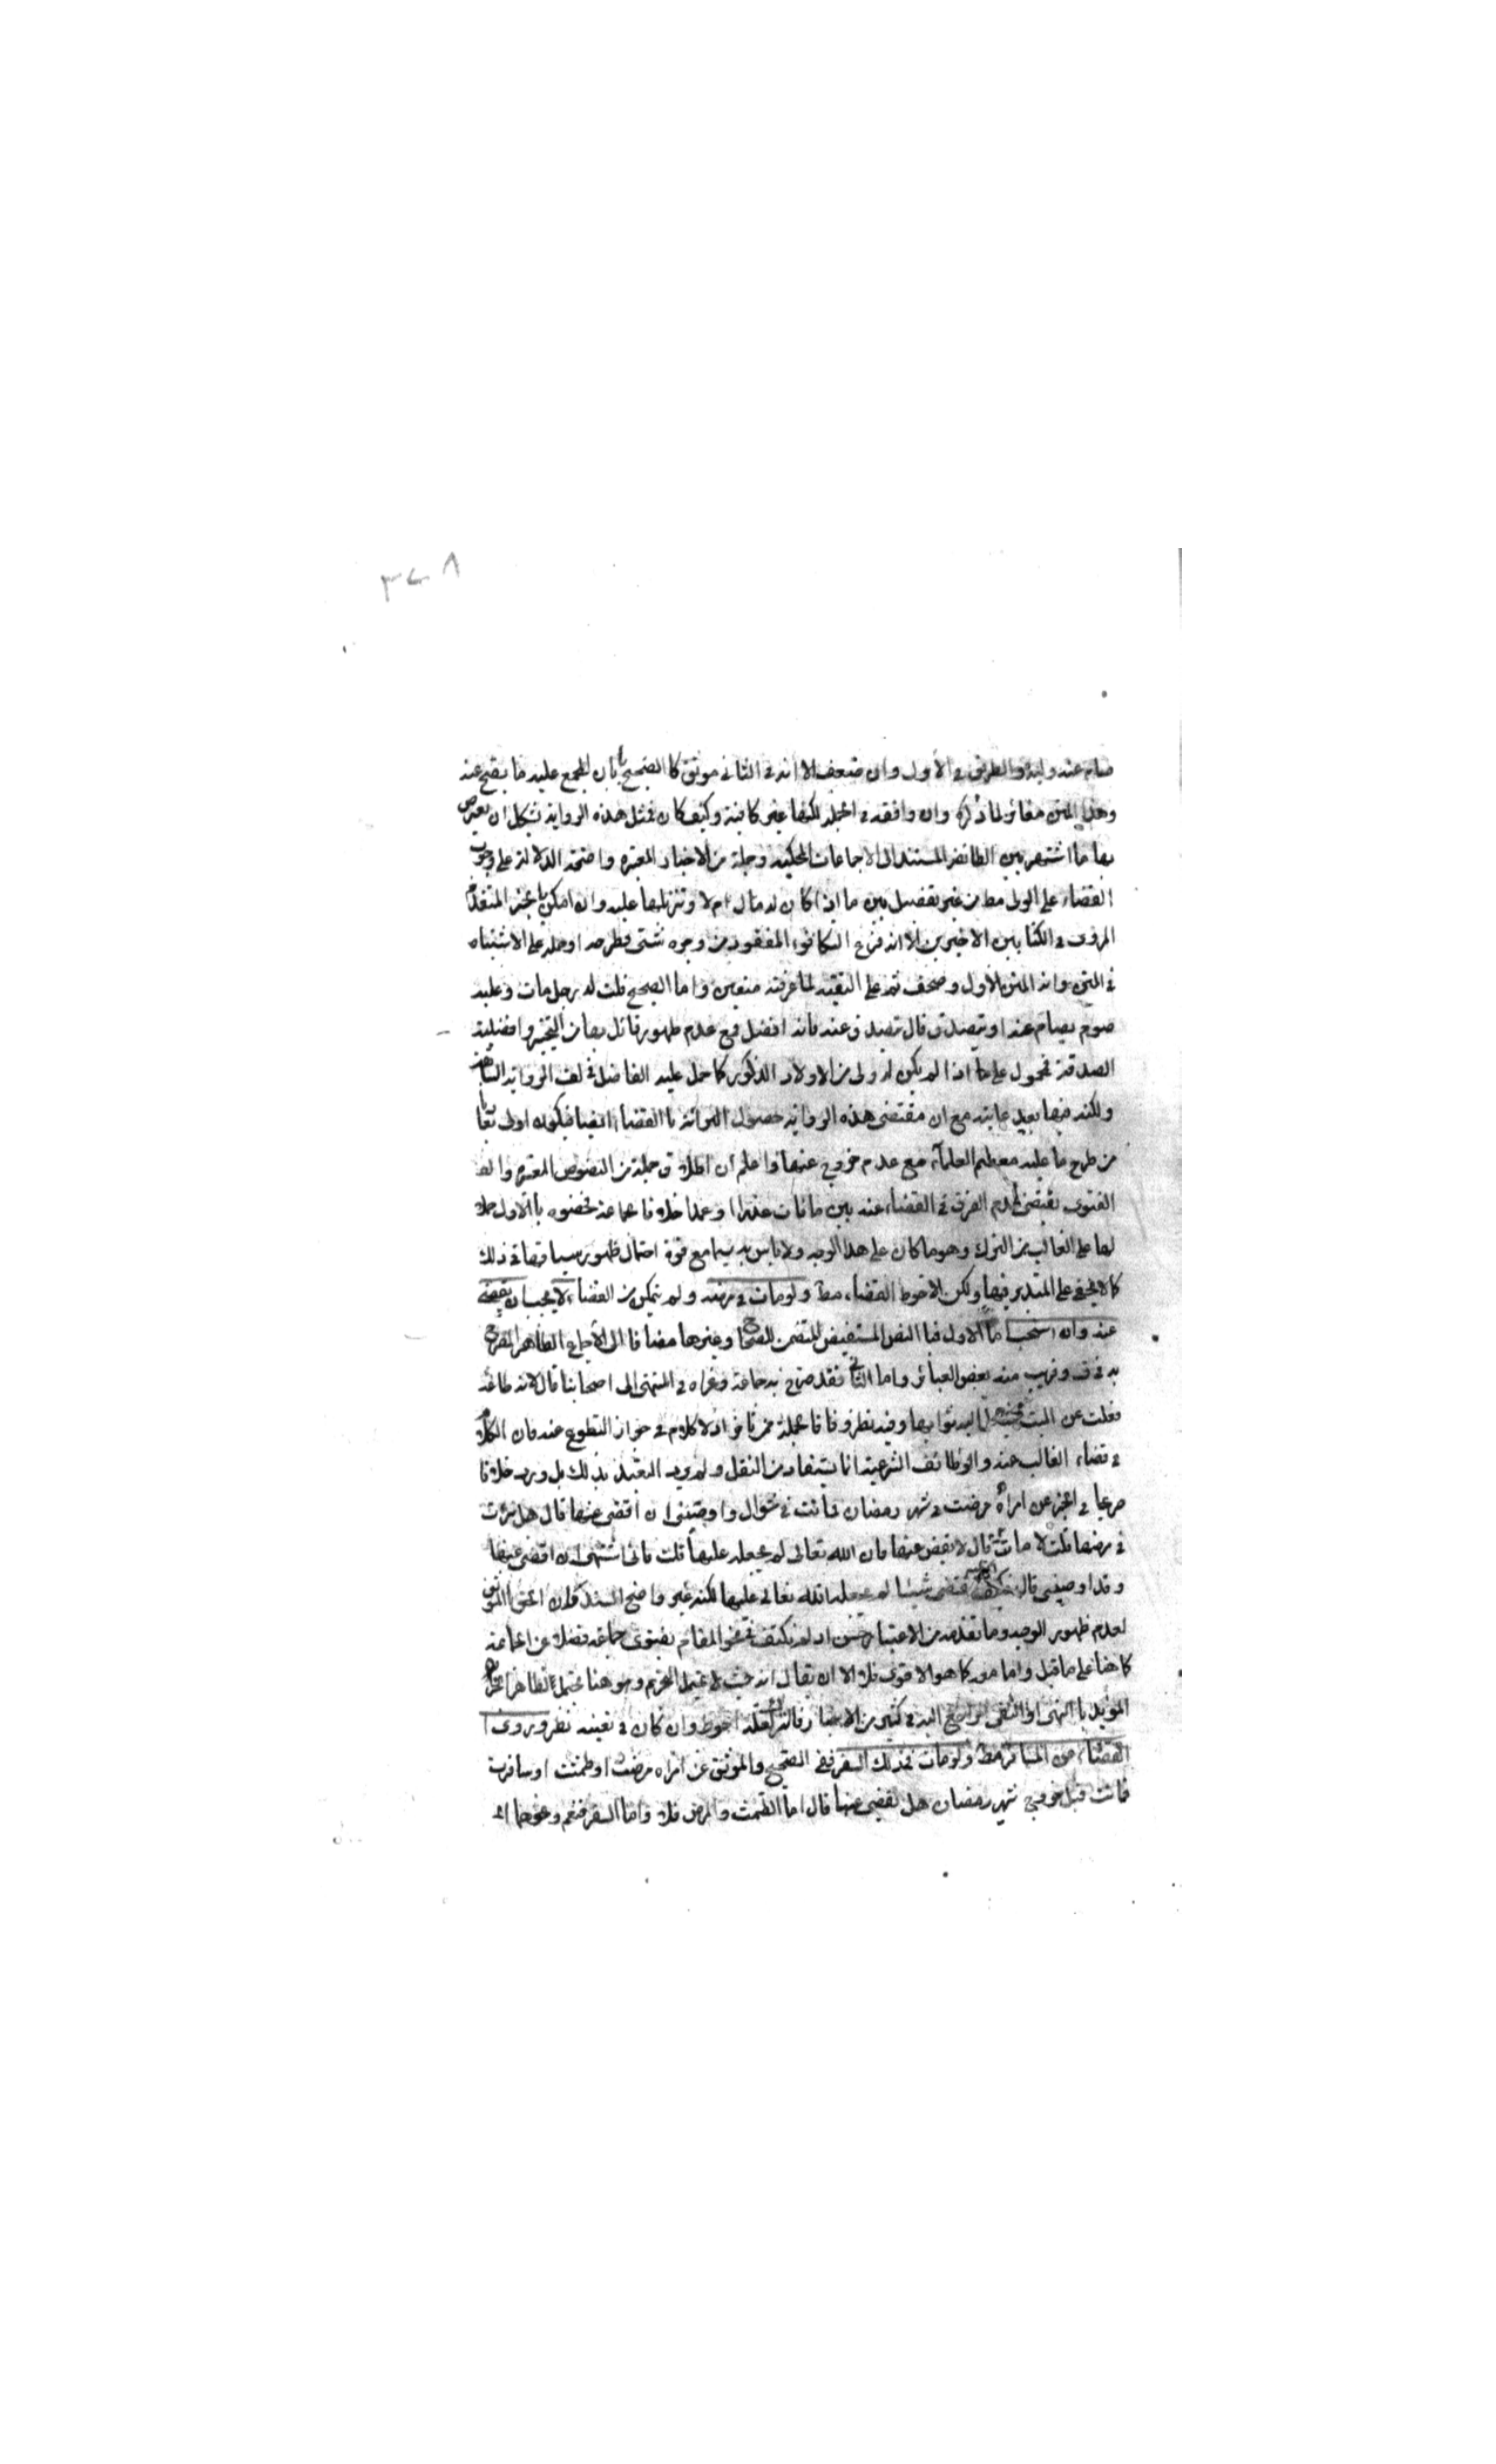 ٣٤٨
صام عنه وليه والطريق في الأول وان ضعف الا انه في الثاني موثق كالصحيح بابان المجمع عليه ما يصح عنه
وهذا المتن مغائر لما ذكره وان وافقه في الجملة لكنها غير كافية وكيف كان فمثل هذه الرواية يشكل ان يعترض
بها ما اشتهر بين الطائفة المستند الى الاجماعات المحكية وجملة من الاخبار المعتبرة واضحة الدلالة على وجوب
القضاء على الولي مط من غير تفصيل بين ما اذا كان له مال ام لا وتنزيلها عليه وان امكن بالخبر المتقدم
المروي في الكتابين الاخيرين الا انه فرع التكافوء المفقود من وجوه شتى فطرحه او حمله على الاشتباه
في المتن وانه المتن الأول وصحف ثم على التقية لما عرفته متعين واما الصحيح قلت له رجل مات وعليه
صوم يصام عنه او يتصدق قال يتصدق عنه فانه افضل فمع عدم ظهور قائل بها من التخيير وافضلية
الصدقة فمحمول على ما اذا لم يكن له ولى من الاولاد الذكور كما حمل عليه الفاضل في لف الرواية السابقة
ولكنه فيها بعيد غايته مع ان مقتضى هذه الرواية حصول البرائة بالقضاء ايضا فيكون اولى
من طرح ما عليه معظم العلماء مع عدم خروج عنها واعلم ان اطلاق جملة من النصوص المعتبرة و
الفتوى يقتضي عدم الفرق في القضاء عنه بين ما فات عذرا وعمدا خلافا لجماعة فخصوه بالأول حملا
لها على الغالب من الترك وهو ما كان على هذا الوجه ولا باس به سيما مع قوة احتمال ظهور سياقها في ذلك
كما لا يخفى على المتدبر فيها ولكن الاحوط القضاء مط ولو مات في مرضه ولم يتمكن من القضاء لا يجب ان يقضى
عنه وان استحب اما الاول فبالنص المستفيض المتضمن للصحاح وغيرها مضافا الى الاجماع الظاهر المصرح
به في ف وقريب منه بعض العبائر واما الثاني فقد صرح به جماعة وعزاه في المنتهى الى اصحابنا قال لانه طاعة
فعلت عن الميت فيصل اليه ثوابها وفيه نظر وفاقا لجملة ممن تاخر اذ لا كلام في جواز التطوع عنه فان الكلام
في قضاء الغائب عنه والوظائف الشرعية انما يستفاد من النقل ولم يرد التعبد بذلك بل ورد خلافه
صريحا في الخبر عن امراة مرضت في شهر رمضان فماتت في شوال واوصتني ان اقضى عنها قال هل برئت
في مرضها قلت لا ماتت قال لا يقض عنها فان الله تعالى لم يجعله عليها قلت فاني اشتهي ان اقضي عنها
وقد اوصتني قال فكيف تقضى شيئا لم يجعله الله تعالى عليها لكنه غير واضح السند وان
لعدم ظهور الوجه وما تقدمه من الاعتبار حسن ان لم نكتف في نحو المقام بفتوى جماعة فضلا عن اجماعه
كما هنا على ما قيل واما معه كما هو الاقوى فلا الا ان يقال انه حيث لا يحتمل التحريم وهو هنا محتمل لظاهر الخبر
المؤيد بالنهى او النفى الراجع اليه في كثير من الاخبار فالترك لعله احوط وان كان في تعينه نظر وروى ا
القضاء عن المسافر مط ولو مات في ذلك السفر ففي الصحيح والموثق عن امراة مرضت او طمثت او سافرت
فماتت قبل خروج شهر رمضان هل يقضى عنها قال اما الطمث والمرض فلا واما السفر فنعم ونحوهما الخبر